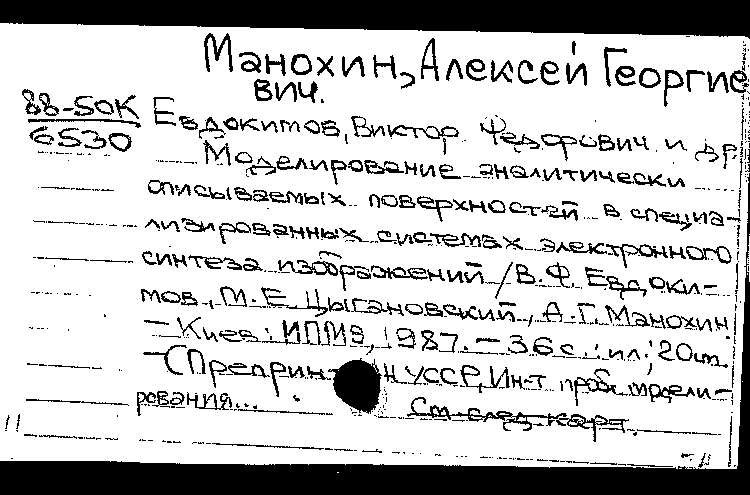 Манохин, Алексей Георгие
вич.
88-50К
6530
Евдокитов, Виктор Федорович и др.
Моделирование аналитически
описываемых поверхностей в специа-
лизированных системах электронного
синтеза изображений / В. Ф. Евдоки-
мов, М. Е. Цыгановский, А. Г. Манохин.
– Киев: ИПМЭ, 1987. – 36 с.: ил.; 20 см.
– (Препринт Н УССР, Ин-т пробл. модели-
рования...
См. след. карт.